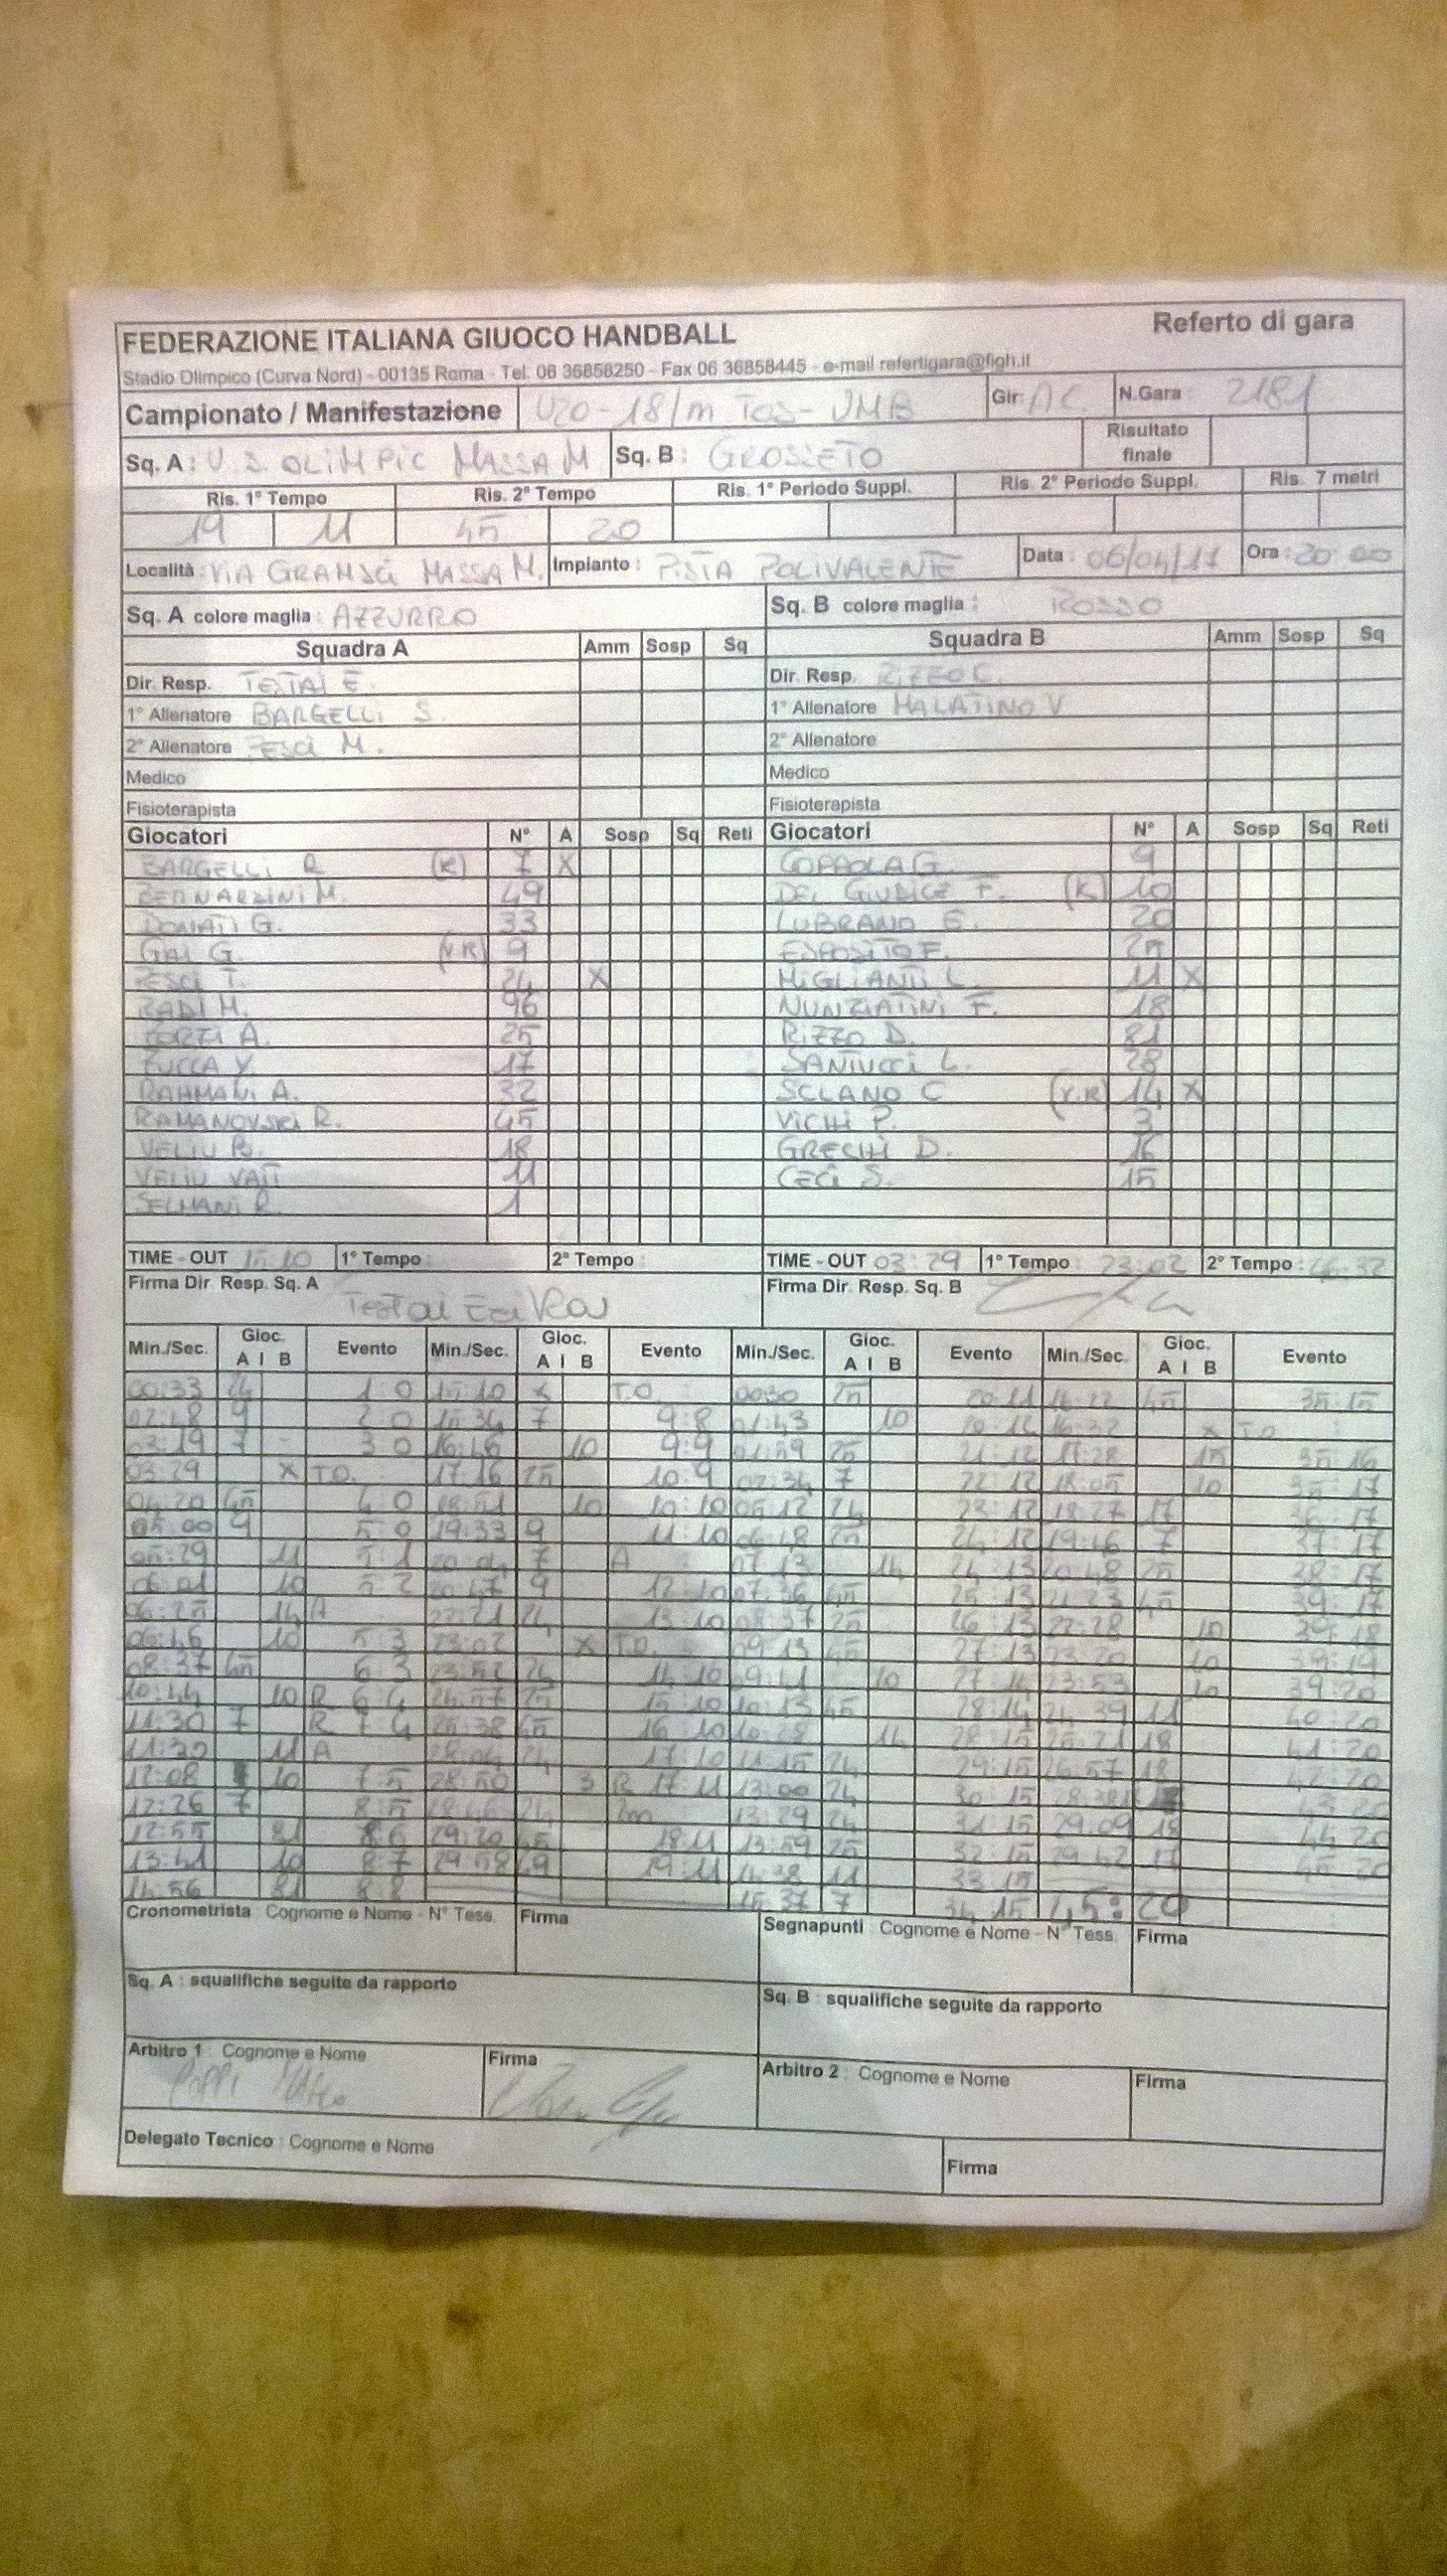 FEDERAZIONE ITALIANA GIUOCO HANDBALL Referto di gara
Stadio Olimpico (Curva Nord) - 00135 Roma - Tel: 06 36858250 - Fax 06 36858445 - e-mail refertigara@figh.it
Campionato / Manifestazione U20-18/M TOS-UMB Gir: AC N.Gara: 2181
Sq. A: U.S. OLIMPIC MASSA M Sq. B: GROSSETO Risultato finale
Ris. 1° Tempo Ris. 2° Tempo Ris. 1° Periodo Suppl. Ris. 2° Periodo Suppl. Ris. 7 metri
19 11 45 20
Località: VIA GRAMSCI MASSA M. Impianto: PISTA POLIVALENTE Data: 06/04/17 Ora: 20:00
Sq. A colore maglia: AZZURRO Sq. B colore maglia: ROSSO
Squadra A Amm Sosp Sq Squadra B Amm Sosp Sq
Dir. Resp. TESTAI E. Dir. Resp. RIZZO
1° Allenatore BARGELLI S. 1° Allenatore MALATINO V
2° Allenatore PESCI M. 2° Allenatore
Medico Medico
Fisioterapista Fisioterapista
Giocatori N° A Sosp Sq Reti Giocatori N° A Sosp Sq Reti
BARGELLI R (K) 7 X COPPOLA G. 9
BERNARDINI M. 49 DEL GIUDICE F. (K) 10
DONATI G. 33 LUBRANO E. 20
GAI G. (V.K) 9 ESPOSITO F. 25
PESCI T. 24 X MIGLIANTI L. 11 X
RADI M. 96 NUNZIATINI F. 18
A. 25 RIZZO D. 81
ZUCCA Y. 17 SANTUCCI L. 28
RAHMANI A. 32 SCLANO C (V.K) 14 X
RAMANOVSKI R. 45 VICHI P. 3
VELIU B. 18 GRECHI D. 16
VELIU VAIT 11 CECI S. 15
SELMANI R. 1
TIME - OUT 15:10 1° Tempo: 2° Tempo: TIME - OUT 03:29 1° Tempo: 23:02 2° Tempo: 16:32
Firma Dir. Resp. Sq. A Firma Dir. Resp. Sq. B
Min./Sec. Gioc. A I B Evento Min./Sec. Gioc. A I B Evento Min./Sec. Gioc. A I B Evento Min./Sec. Gioc. A I B Evento
00:33 24 1 0 15:10 X T.O. 00:30 25 20:11 16:22 45 35:15
02:18 9 2 0 15:34 7 9:8 01:43 10 20:12 16:32 X T.O.
03:19 7 3 0 16:46 10 9:9 01:59 25 21:12 17:28 15 35:16
03:29 X T.O. 17:16 25 10:9 02:34 7 22:12 18:05 10 35:17
04:20 45 4 0 18:51 10 10:10 05:12 24 23:12 18:27 17 36:17
05:00 9 5 0 19:33 9 11 10 06:18 25 24:12 19:46 7 37:17
05:29 11 5:1 20:04 7 A 07:13 14 24:13 20:48 25 38:17
06:01 10 5 2 20:47 9 12:10 07:36 45 25:13 21:23 45 39:17
06:25 14 A 22:21 24 13 10 08:37 25 26:13 22:28 10 39:18
06:46 10 5 3 23:02 X T.O. 09:13 45 27:13 23:20 10 39:19
08:37 45 6 3 23:51 24 14:10 09:41 10 27:14 23:53 10 39:20
10:44 10 R 6 4 24:57 25 15:10 10:13 45 28:14 24:39 11 40:20
11:30 7 R 7 4 25:38 45 16 10 10:28 14 28:15 25:21 18 41:20
11:30 11 A 28:04 24 17:10 11:15 24 29:15 26:57 18 42:20
12:08 10 7:5 28:50 3 R 17:11 13:00 24 30:15 28:38 43:20
12:26 7 8:5 28:46 24 2m 13:29 24 31:15 29:09 18 44 20
12:55 81 8 6 29:20 45 18:11 13:59 25 32:15 29:42 17 45:20
13:41 10 8:7 29:58 49 19:11 14:38 11 33:15
14:56 81 8:8 15:37 7 34:15 45:20
Cronometrista: Cognome e Nome - N° Tess. Firma Segnapunti: Cognome e Nome - N° Tess. Firma
Sq. A : squalifiche seguite da rapporto Sq. B : squalifiche seguite da rapporto
Arbitro 1 : Cognome e Nome Firma Arbitro 2 : Cognome e Nome Firma
Delegato Tecnico : Cognome e Nome Firma